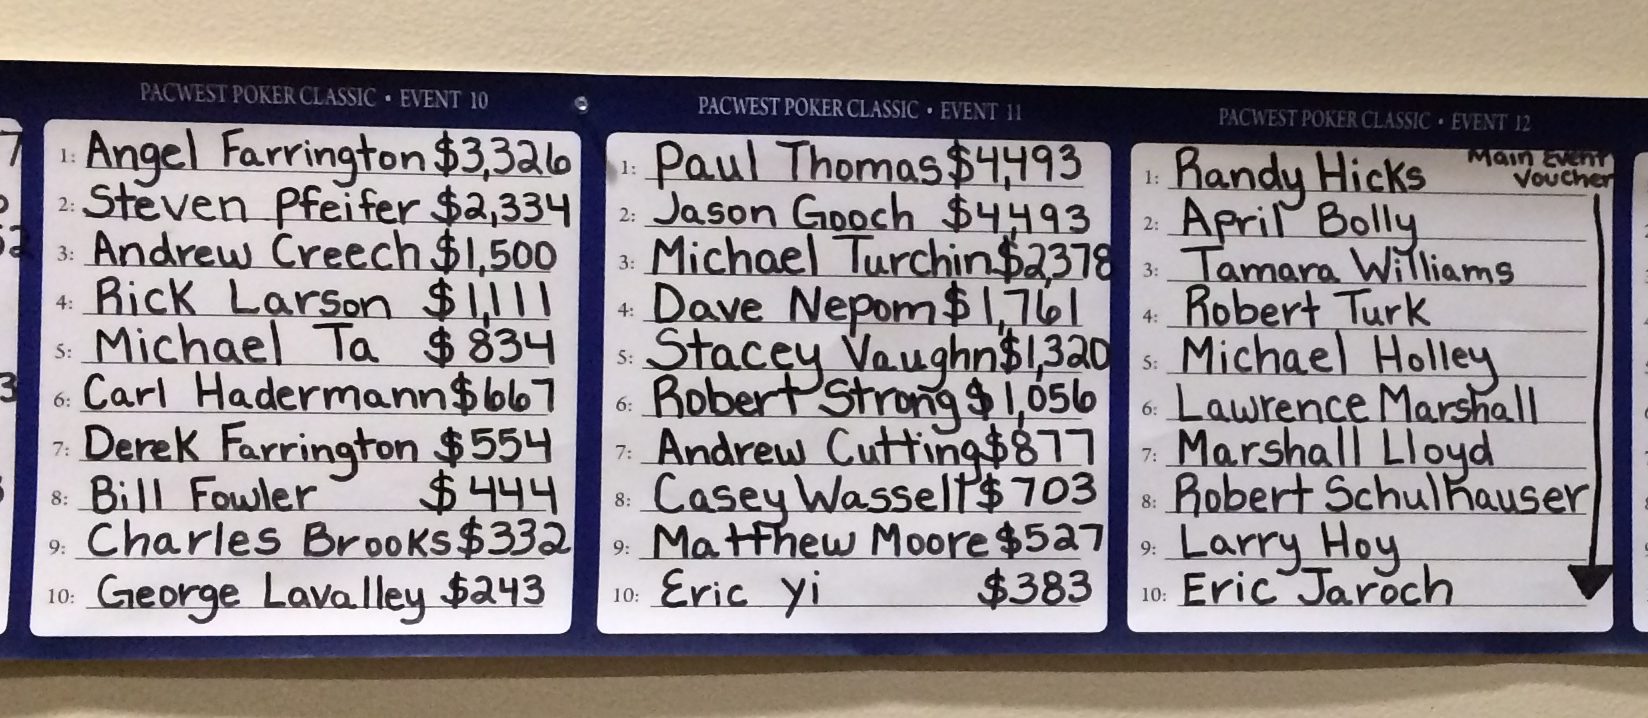 PACWEST POKER CLASSIC • EVENT 10
1: Angel Farrington $3,326
2: Steven Pfeifer $2,334
3: Andrew Creech $1,500
4: Rick Larson $1,111
5: Michael Ta $834
6: Carl Hadermann $667
7: Derek Farrington $554
8: Bill Fowler $444
9: Charles Brooks $332
10: George Lavalley $243
PACWEST POKER CLASSIC • EVENT 11
1: Paul Thomas $4,493
2: Jason Gooch $4,493
3: Michael Turchin $2,378
4: Dave Nepom $1,761
5: Stacey Vaughn $1,320
6: Robert Strong $1,056
7: Andrew Cutting $877
8: Casey Wasselt $703
9: Matthew Moore $527
10: Eric Yi $383
PACWEST POKER CLASSIC • EVENT 12
Main Event
Voucher
1: Randy Hicks
2: April Bolly
3: Tamara Williams
4: Robert Turk
5: Michael Holley
6: Lawrence Marshall
7: Marshall Lloyd
8: Robert Schulhauser
9: Larry Hoy
10: Eric Jaroch